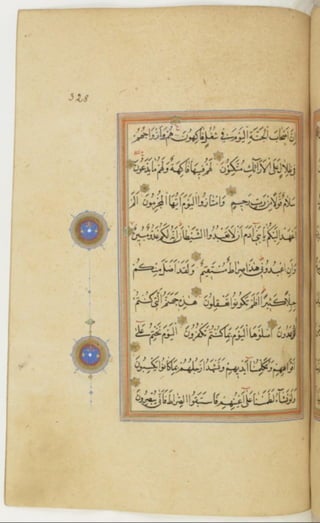 328
اِنَّ اَصْحَابَ الْجَنَّةِ الْيَوْمَ فِي شُغُلٍ فَاكِهُونَ هُمْ وَاَزْوَاجُهُمْ
فِي ظِلَالٍ عَلَى الْاَرَائِكِ مُتَّكِئُونَ لَهُمْ فِيهَا فَاكِهَةٌ وَلَهُمْ مَا يَدَّعُونَ
سَلَامٌ قَوْلًا مِنْ رَبٍّ رَحِيمٍ وَامْتَازُوا الْيَوْمَ اَيُّهَا الْمُجْرِمُونَ اَلَمْ
اَعْهَدْ اِلَيْكُمْ يَا بَنِي آدَمَ اَنْ لَا تَعْبُدُوا الشَّيْطَانَ اِنَّهُ لَكُمْ عَدُوٌّ مُبِينٌ
وَاَنِ اعْبُدُونِي هٰذَا صِرَاطٌ مُسْتَقِيمٌ وَلَقَدْ اَضَلَّ مِنْكُمْ
جِبِلًّا كَثِيرًا اَفَلَمْ تَكُونُوا تَعْقِلُونَ هٰذِهِ جَهَنَّمُ الَّتِي كُنْتُمْ
تُوعَدُونَ اِصْلَوْهَا الْيَوْمَ بِمَا كُنْتُمْ تَكْفُرُونَ اَلْيَوْمَ نَخْتِمُ عَلَى
اَفْوَاهِهِمْ وَتُكَلِّمُنَا اَيْدِيهِمْ وَتَشْهَدُ اَرْجُلُهُمْ بِمَا كَانُوا يَكْسِبُونَ
وَلَوْ نَشَاءُ لَطَمَسْنَا عَلَى اَعْيُنِهِمْ فَاسْتَبَقُوا الصِّرَاطَ فَاَنَّى يُبْصِرُونَ